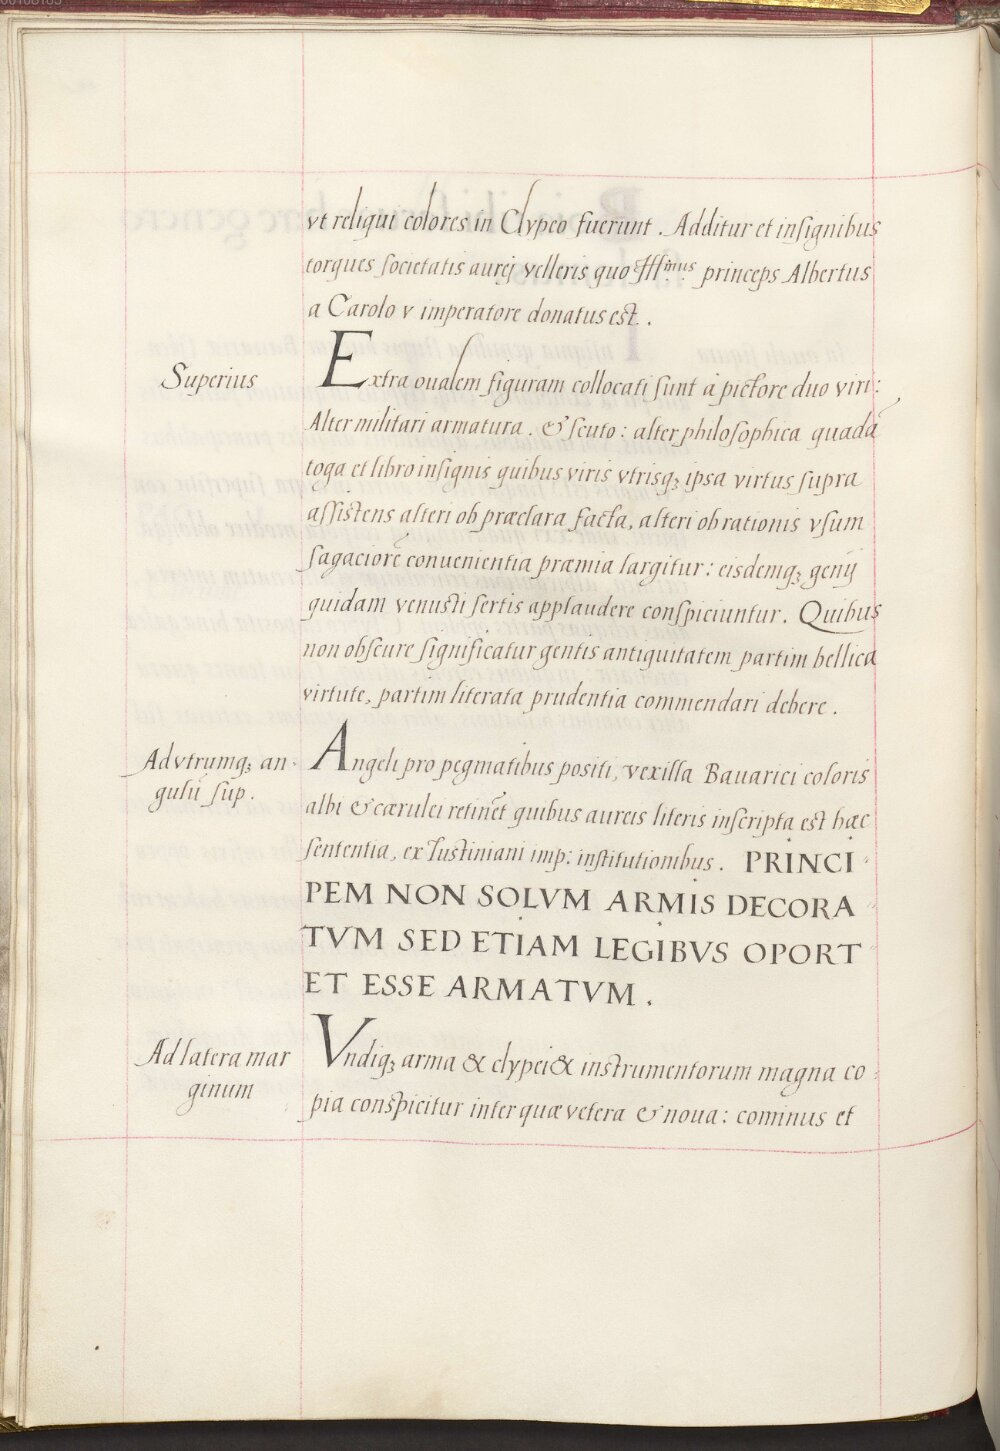 vt religui colores in Clypeo fuerunt. Additur et insignibus
torques societatis aurej velleris quo Illmus princeps Albertus
a Carolo v imperatore donatus est.
Superius
Extra oualem figuram collocati sunt à pictore duo viri:
Alter militari armatura. & scuto: alter philosophica quadā
toga et libro insignis quibus viris vtrisqꝫ ipsa virtus supra
assistens alteri ob præclara facta, alteri ob rationis vsum
sagaciorē conuenientia præmia largitur: eisdemqꝫ genij
quidam venusti sertis applaudere conspiciuntur. Quibus
non obscure significatur gentis antiquitatem partim bellica
virtute, partim literata prudentia commendari debere.
Ad vtrumqꝫ an-
gulū sup.
Angeli pro pegmatibus positi, vexilla Bauarici coloris
albi & cærulei retinēt quibus aureis literis inscripta est hæc
sententia, ex Iustiniani imp: institutionibus. PRINCI-
PEM NON SOLVM ARMIS DECORA-
TVM SED ETIAM LEGIBVS OPORT-
ET ESSE ARMATVM.
Ad latera mar
ginum
Vndiqꝫ arma & clypei & instrumentorum magna co-
pia conspicitur inter quæ vetera & noua: cominus et